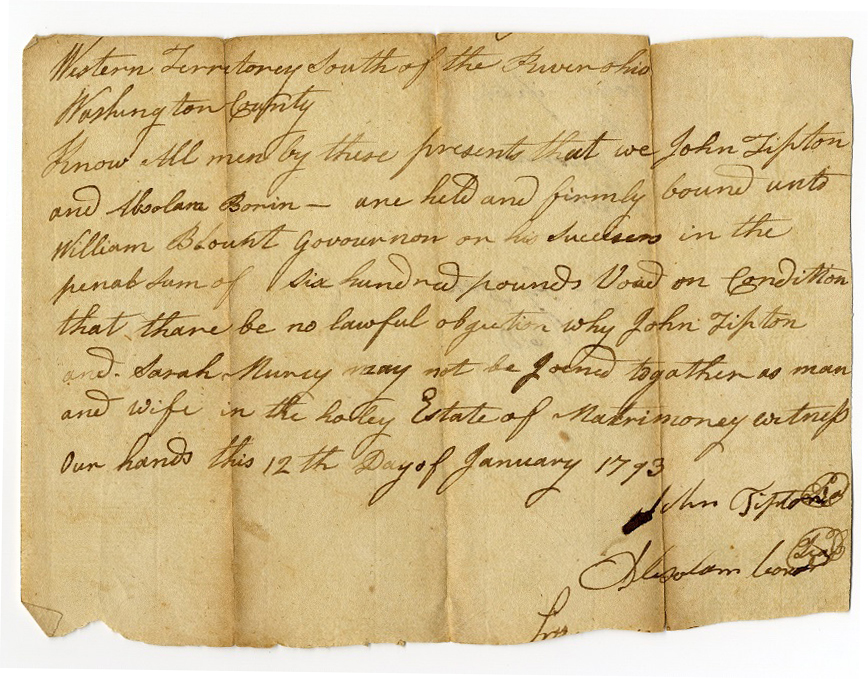 Western Territorey South of the River ohio
Washington County
Know All men by these presents that we John Tipton
and Absolam Borin — are held and firmly bound unto
William Blount Govournon or his Successers in the
penal Sum of six hundred pounds Void on Condition
that thare be no lawful obgection why John Tipton
and Sarah Murey may not be Joened togather as man
and wife in the holey Estate of Matrimoney witness
Our hands this 12th Day of January 1793
John Tipton
Absolam